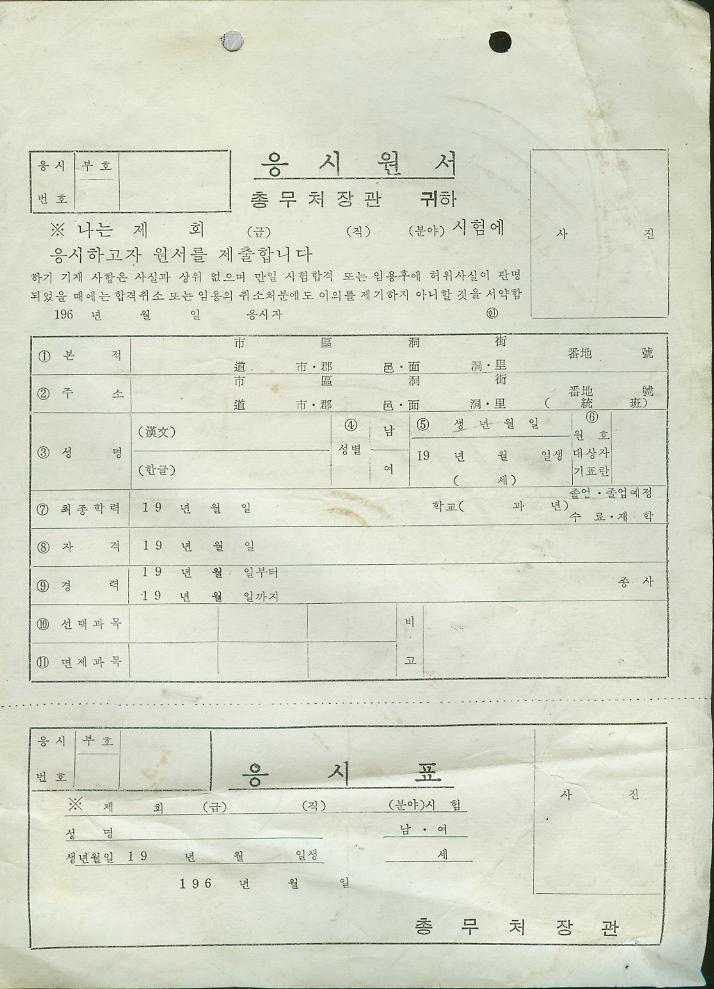 응시 부호
번호
응 시 원 서
총무처장관 귀하
사 진
※ 나는 제 회 (급) (직) (분야) 시험에
응시하고자 원서를 제출합니다
하기 기재 사항은 사실과 상위 없으며 만일 시험합격 또는 임용후에 허위사실이 판명
되었을 때에는 합격취소 또는 임용의 취소처분에도 이의를 제기하지 아니할 것을 서약함
196 년 월 일 응시자 ㊞
① 본 적 市 區 洞 街 番地 號
道 市·郡 邑·面 洞·里
② 주 소 市 區 洞 街 番地 號
道 市·郡 邑·面 洞·里 ( 統 班)
③ 성 명 (漢文) (한글)
④ 성별 남 여
⑤ 생 년 월 일
19 년 월 일생
( 세)
⑥ 원 호
대상자
기표란
⑦ 최종학력 19 년 월 일 학교( 과 년) 졸업·졸업예정
수 료·재 학
⑧ 자 격 19 년 월 일
⑨ 경 력 19 년 월 일부터 종 사
19 년 월 일까지
⑩ 선택과목 비
⑪ 면제과목 고
응시 부호
번호
응 시 표
사 진
※ 제 회 (급) (직) (분야)시 험
성 명 남 · 여
생년월일 19 년 월 일생 세
196 년 월 일
총 무 처 장 관